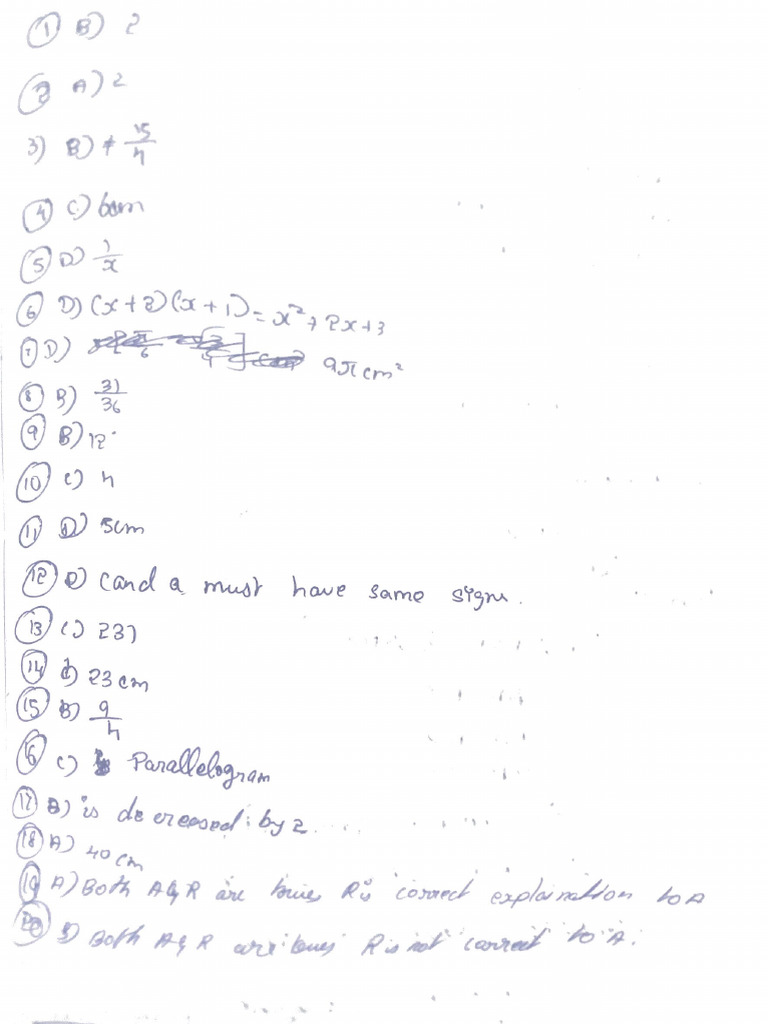 ① B) 2
② A) 2
3) B) ≠ 15/4
④ C) 6cm
⑤ D) 1/x
⑥ D) (x+2)(x+1) = x²+2x+3
⑦ D) 9π cm²
⑧ B) 31/36
⑨ B) 12
⑩ C) 4
⑪ D) 5cm
⑫ D) c and a must have same sign.
⑬ C) 231
⑭ 23 cm
⑮ B) 9/4
⑯ C) Parallelogram
⑰ B) is decreased by 2
⑱ A) 40 cm
⑲ A) Both A & R are R is correct explaination to A
⑳ Both A & R are R is not correct to A.